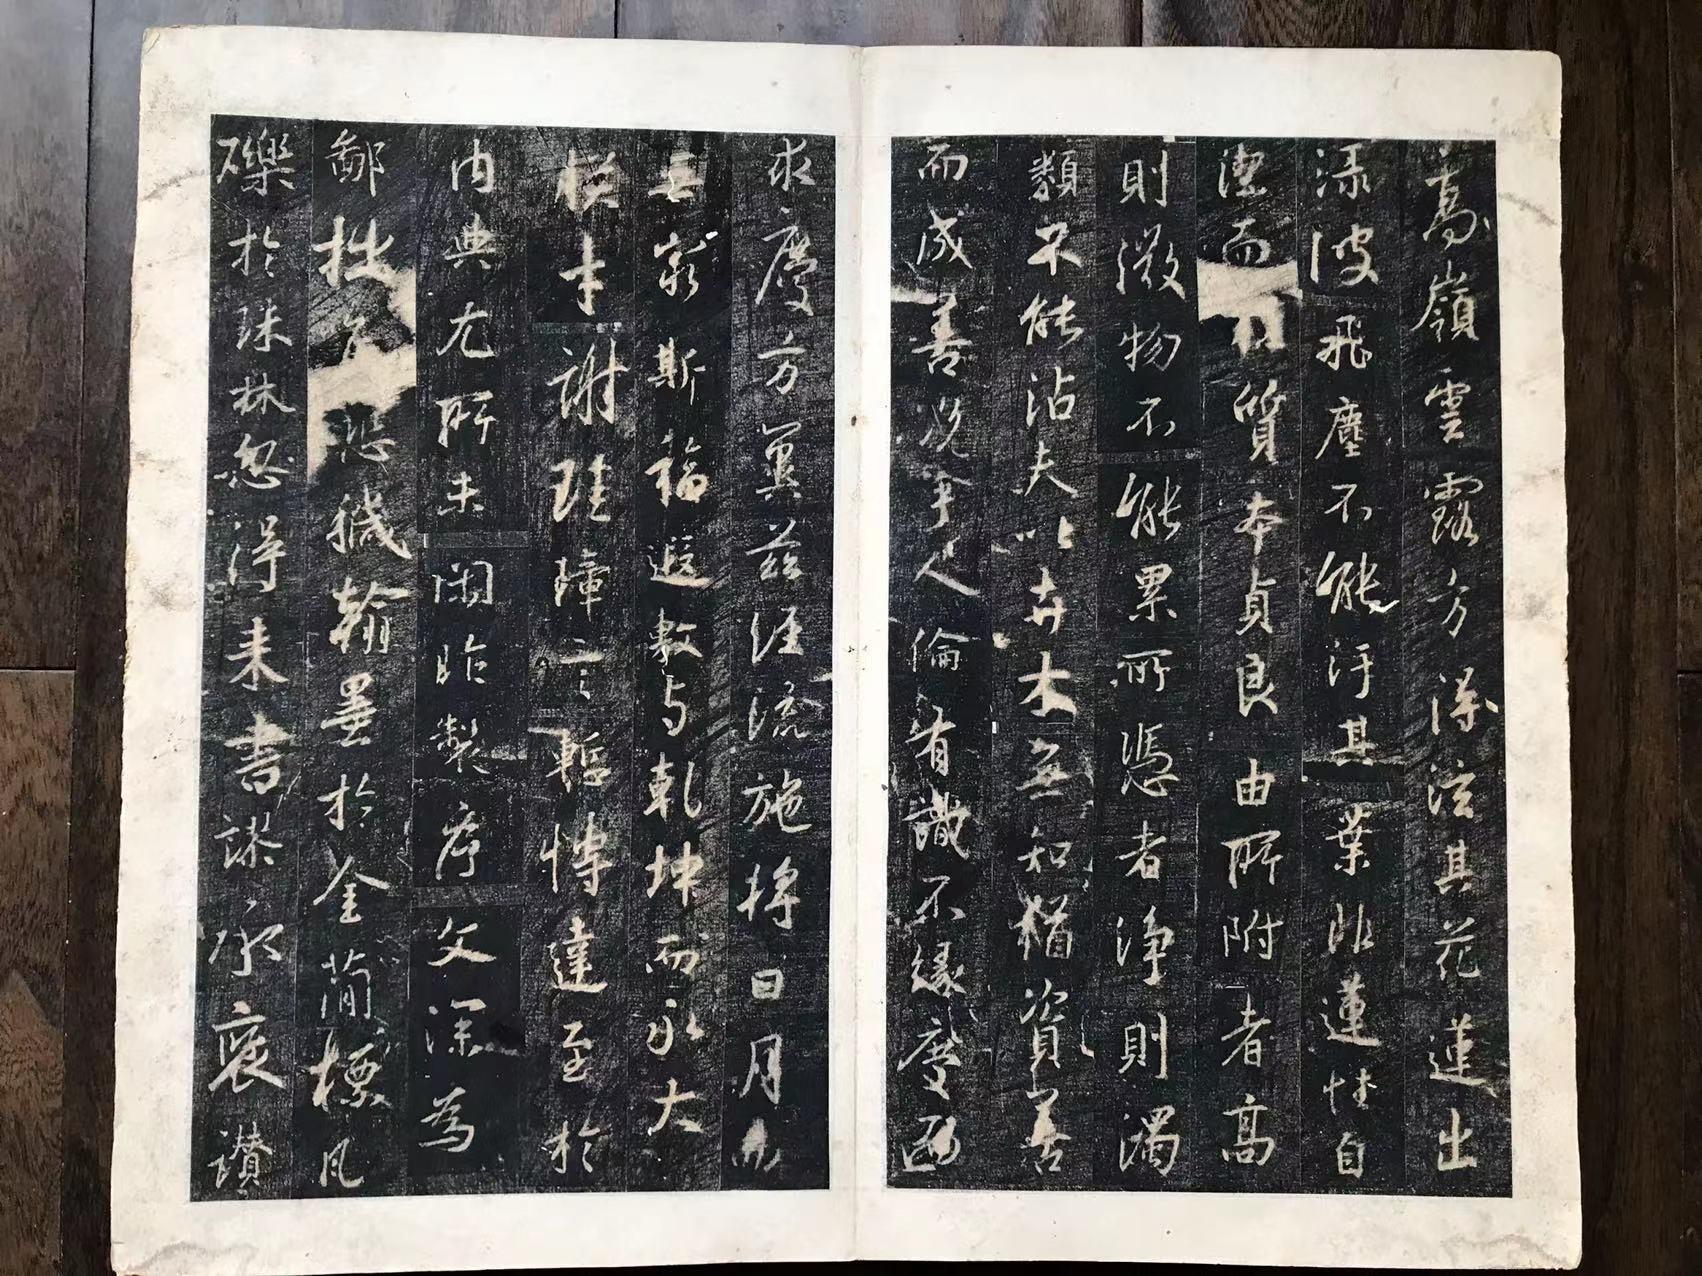 高嶺雲露方得泫其花蓮出
淥波飛塵不能汙其葉非蓮性自
潔而桂質本貞良由所附者高
則微物不能累所憑者淨則濁
類不能沾夫以卉木無知猶資善
而成善況乎人倫有識不緣慶而
求慶方冀茲經流施將日月而
無窮斯福遐敷与乾坤而永大
朕才謝珪璋言慚博達至於
內典尤所未閑昨製序文深為
鄙拙恐穢翰墨於金簡標瓦
礫於珠林忽得来書謬承褒讚